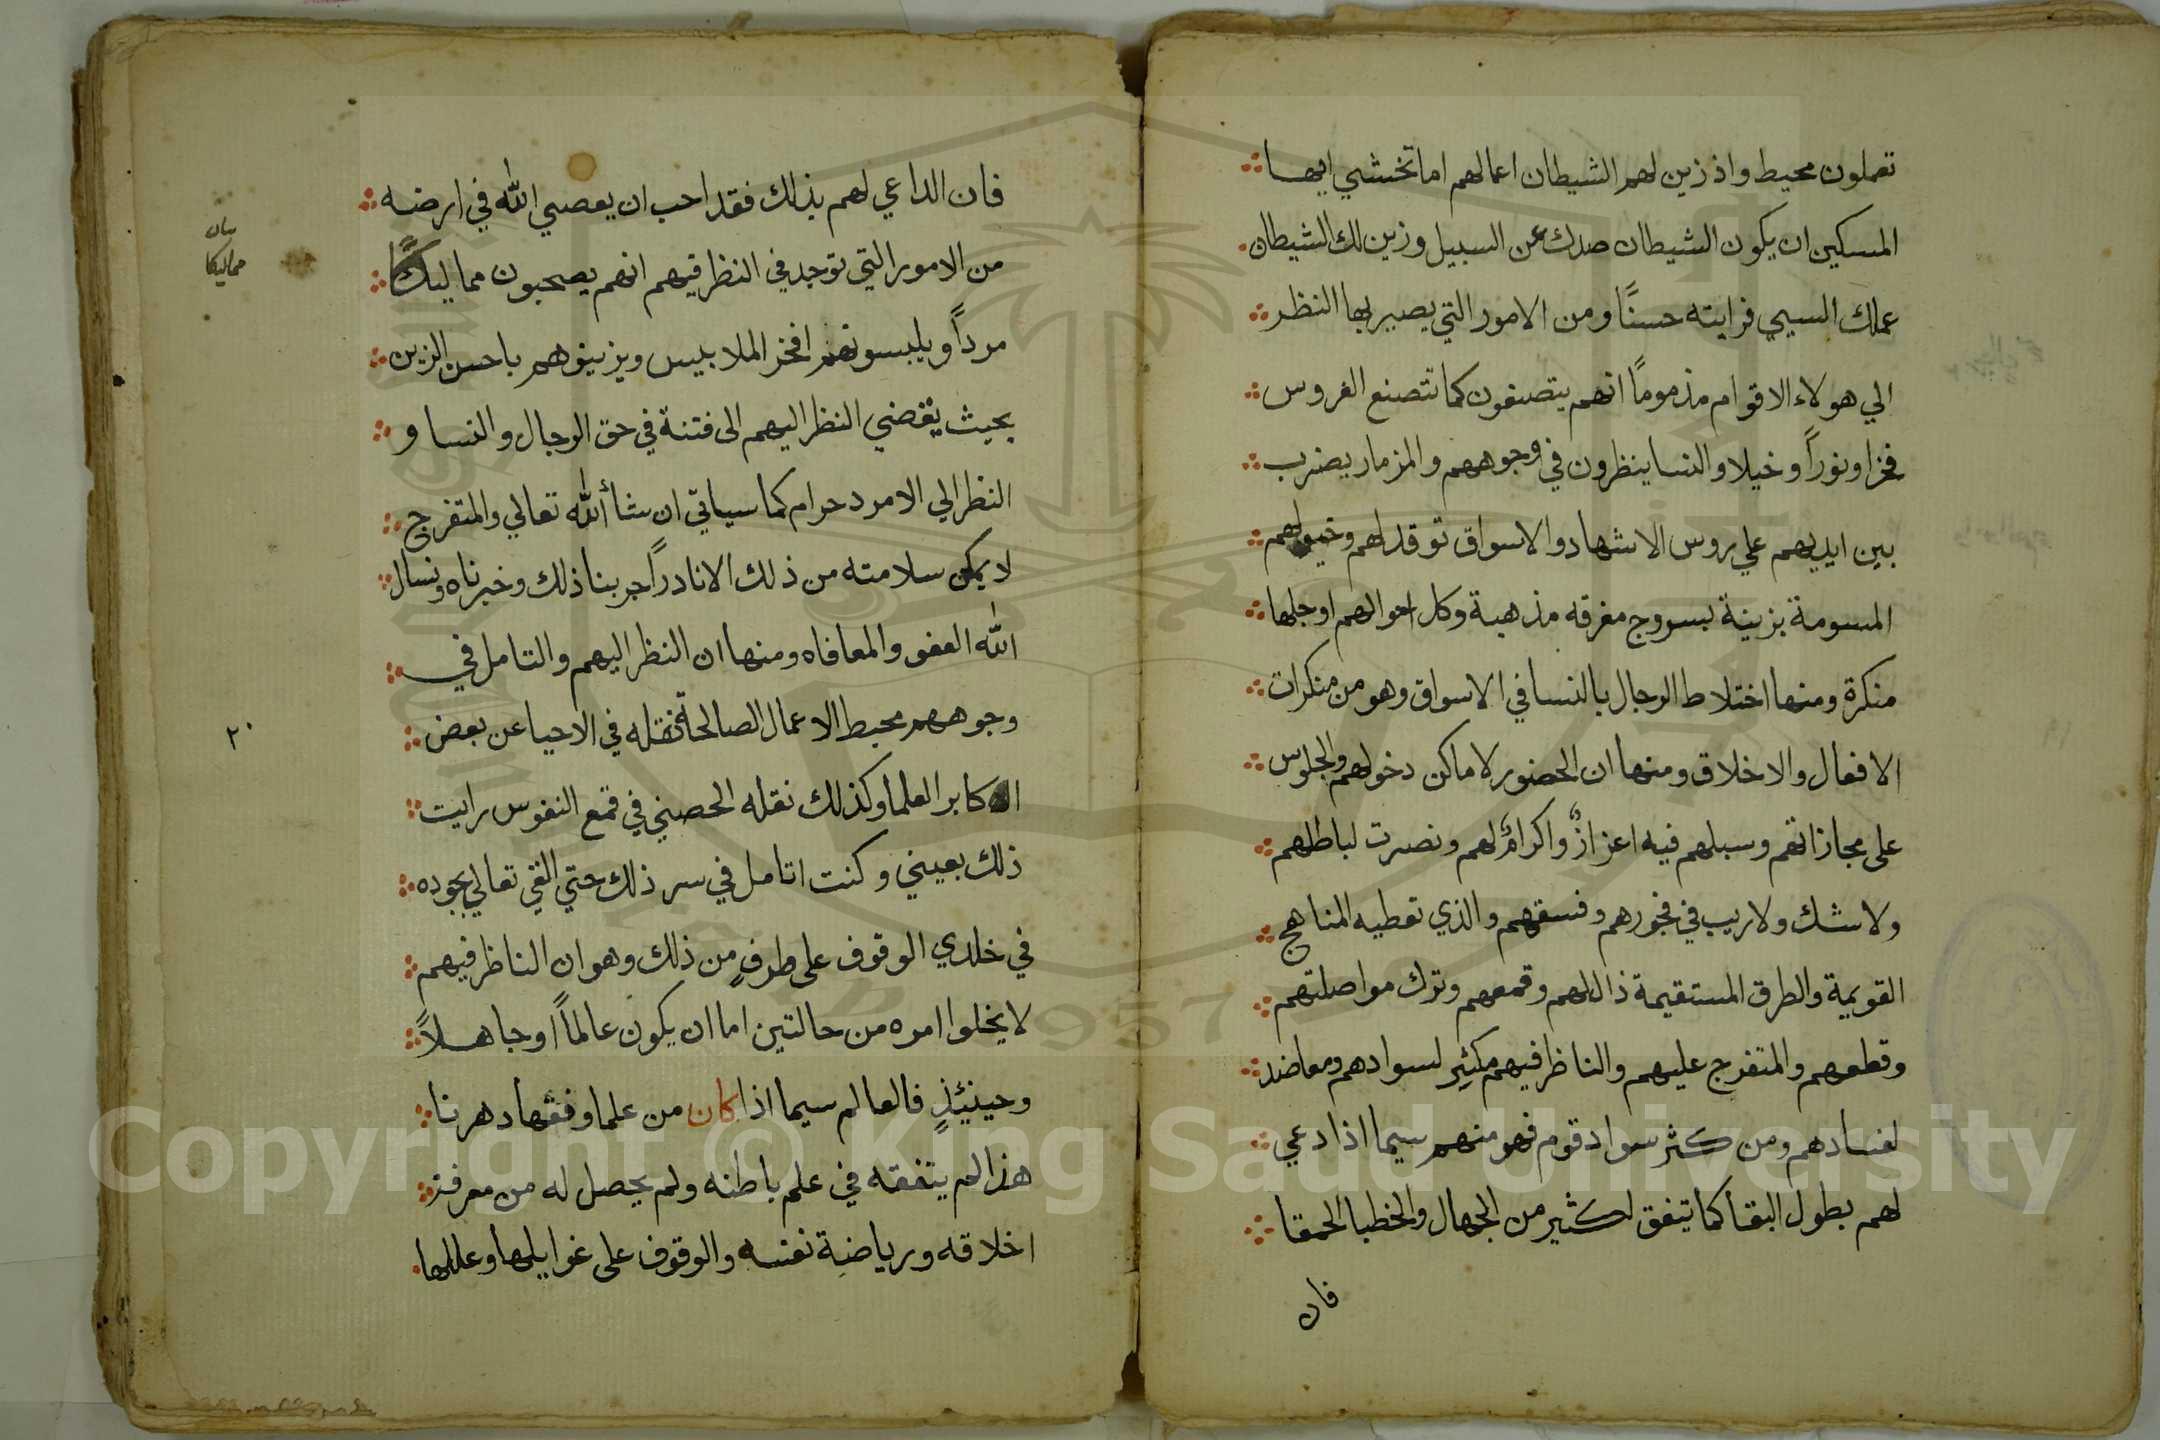 تعملون محيط واذ زين لهم الشيطان اعمالهم اما تخشي ايها
المسكين ان يكون الشيطان صدك عن السبيل وزين لك الشيطان
عملك السيي فرايته حسنًا ومن الامور التي يصير بها النظر
الي هولاء الاقوام مذمومًا انهم يتصنفون كما تتصنع العروس
فخرا ونوراً وخيلا والنسا ينظرون في وجوههم والمزمار يضرب
بين ايديهم علي روس الاشهاد والاسواق توقد لهم وخيولهم
المسومة بزينة بسروج مغرقه مذهبة وكل احوالهم اوجلها
منكرة ومنها اختلاط الرجال بالنسا في الاسواق وهو من منكرات
الافعال والاخلاق ومنها ان الحضور لاماكن دخولهم والجلوس
على مجازاتهم وسبلهم فيه اعزازٌ واكرامٌ لهم ونصرت لباطلهم
ولا شك ولا ريب في فجورهم وفسقهم والذي تعطيه المناهج
القويمة والطرق المستقيمة ذالهم وقمعهم وترك مواصلتهم
وقطعهم والمتفرج عليهم والناظر فيهم مكثر لسوادهم ومعاضد
لفسادهم ومن كثر سواد قوم فهو منهم سيما اذا دعي
لهم بطول البقا كما يتفق لكثير من الجهال والخطبا الحمقا
فان
فان الداعي لهم بذلك فقد احب ان يعصي الله في ارضه
من الامور التي توجد في النظر فيهم انهم يصحبون مماليكًا
مرداً ويلبسونهم افخر الملابيس ويزينوهم باحسن الزين
بحيث يفضي النظر اليهم الى فتنة في حق الرجال والنسا و
النظر الي الامرد حرام كما سياتي ان شا الله تعالي والمتفرج
لا يمكن سلامته من ذلك الا نادراً جربنا ذلك وخبرناه ونسال
الله العفو والمعافاه ومنها ان النظر اليهم والتامل في
وجوههم محبط الاعمال الصالحة نقله في الاحيا عن بعض
الاكابر العلما وكذلك نقله الحصني في قمع النفوس رايت
ذلك بعيني وكنت اتامل في سر ذلك حتي القي تعالي بجوده
في خلدي الوقوف على طرفٍ من ذلك وهو ان الناظر فيهم
لا يخلوا امره من حالتين اما ان يكون عالماً او جاهلاً
وحينئذٍ فالعالم سيما اذا كان من علما وفقها دهرنا
هذا لم يتفقه في علم باطنه ولم يحصل له من معرفة
اخلاقه ورياضة نفسه والوقوف على غوايلها وعللها
بيان
مماليكا
٢٠
Copyright © King Saud University
1957